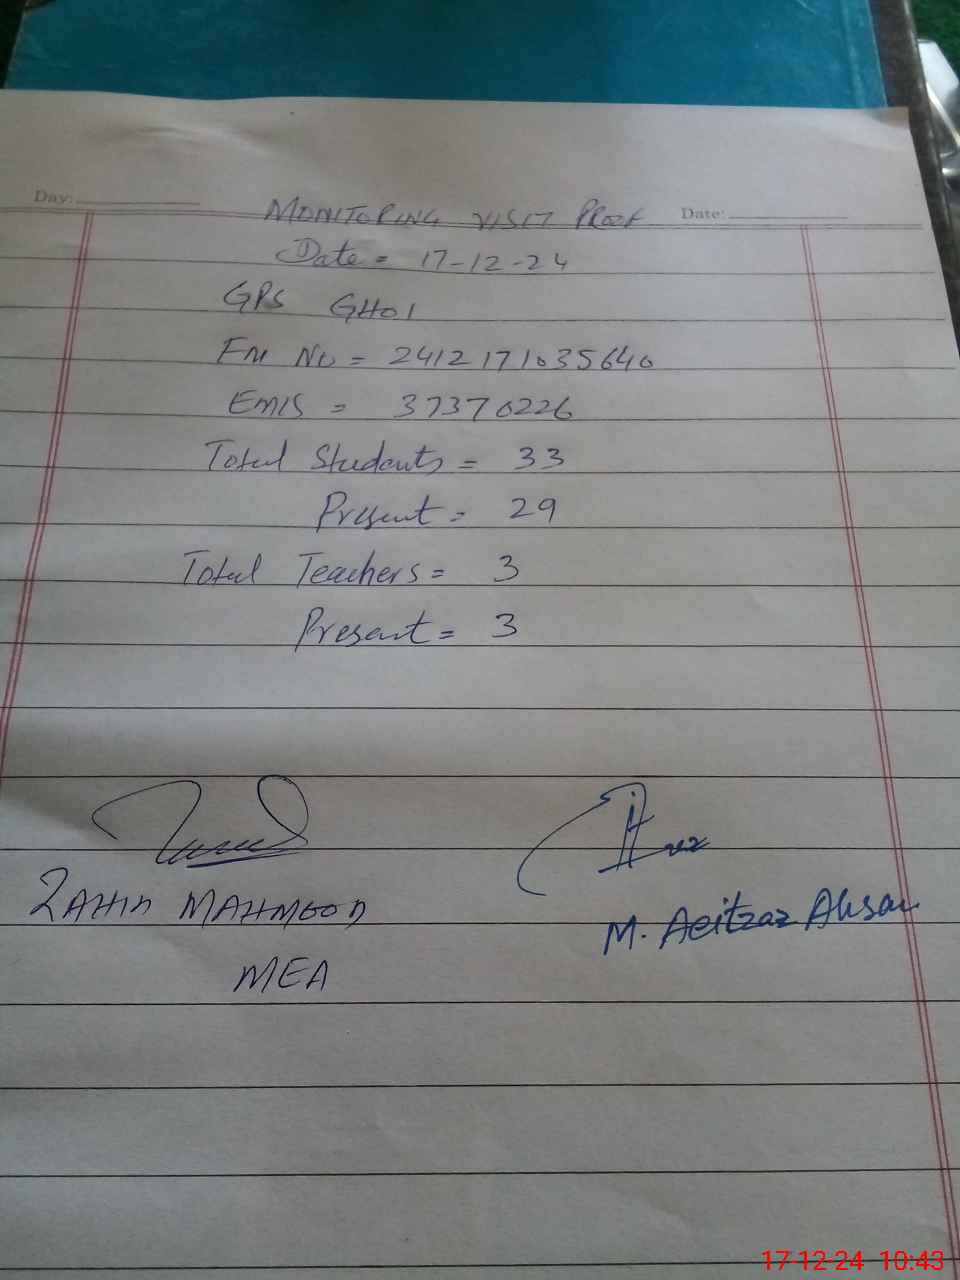 Day:
MONITORING VISIT PROOF Date:
Date = 17-12-24
GPS GHOI
FM No = 2412171035640
EMIS = 37370226
Total Students = 33
Present = 29
Total Teachers = 3
Present = 3
ZAHID MAHMOOD
MEA
M. Aeitzaz Ahsan
17-12-24 10:43